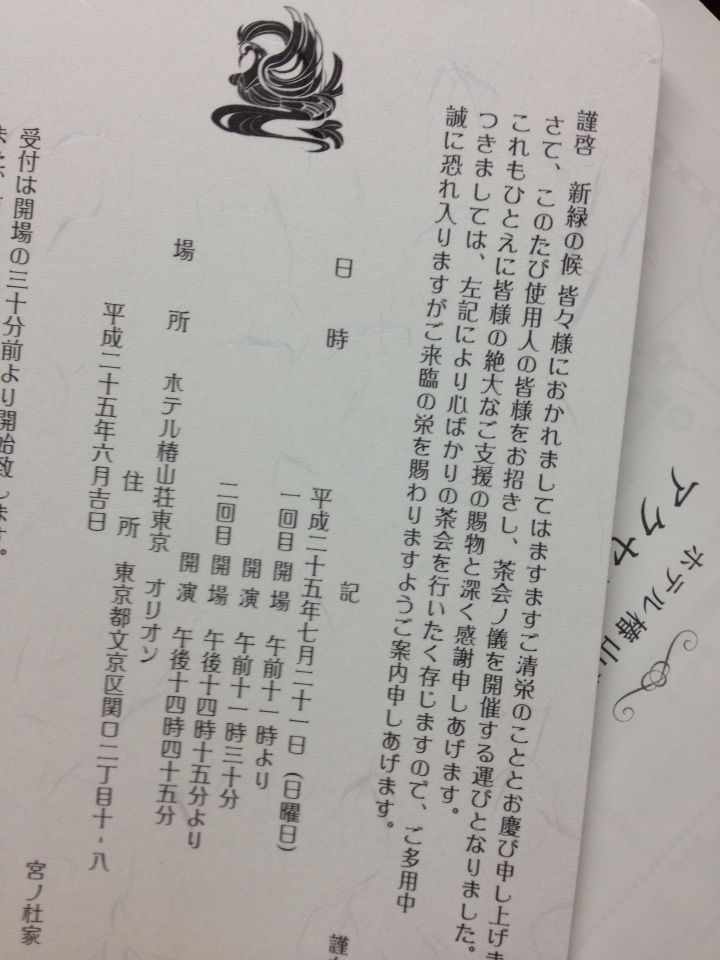 謹啓　新緑の候 皆々様におかれましてはますますご清栄のこととお慶び申し上げま
さて、このたび使用人の皆様をお招きし、茶会ノ儀を開催する運びとなりました。
これもひとえに皆様の絶大なご支援の賜物と深く感謝申しあげます。
つきましては、左記により心ばかりの茶会を行いたく存じますので、ご多用中
誠に恐れ入りますがご来臨の栄を賜わりますようご案内申しあげます。
謹
記
日時　平成二十五年七月二十一日（日曜日）
一回目 開場　午前十一時より
開演　午前十一時三十分
二回目 開場　午後十四時十五分より
開演　午後十四時四十五分
場所　ホテル椿山荘東京　オリオン
住所　東京都文京区関口二丁目十-八
平成二十五年六月吉日
宮ノ杜家
受付は開場の三十分前より開始致します。
アクセ
ホテル椿山